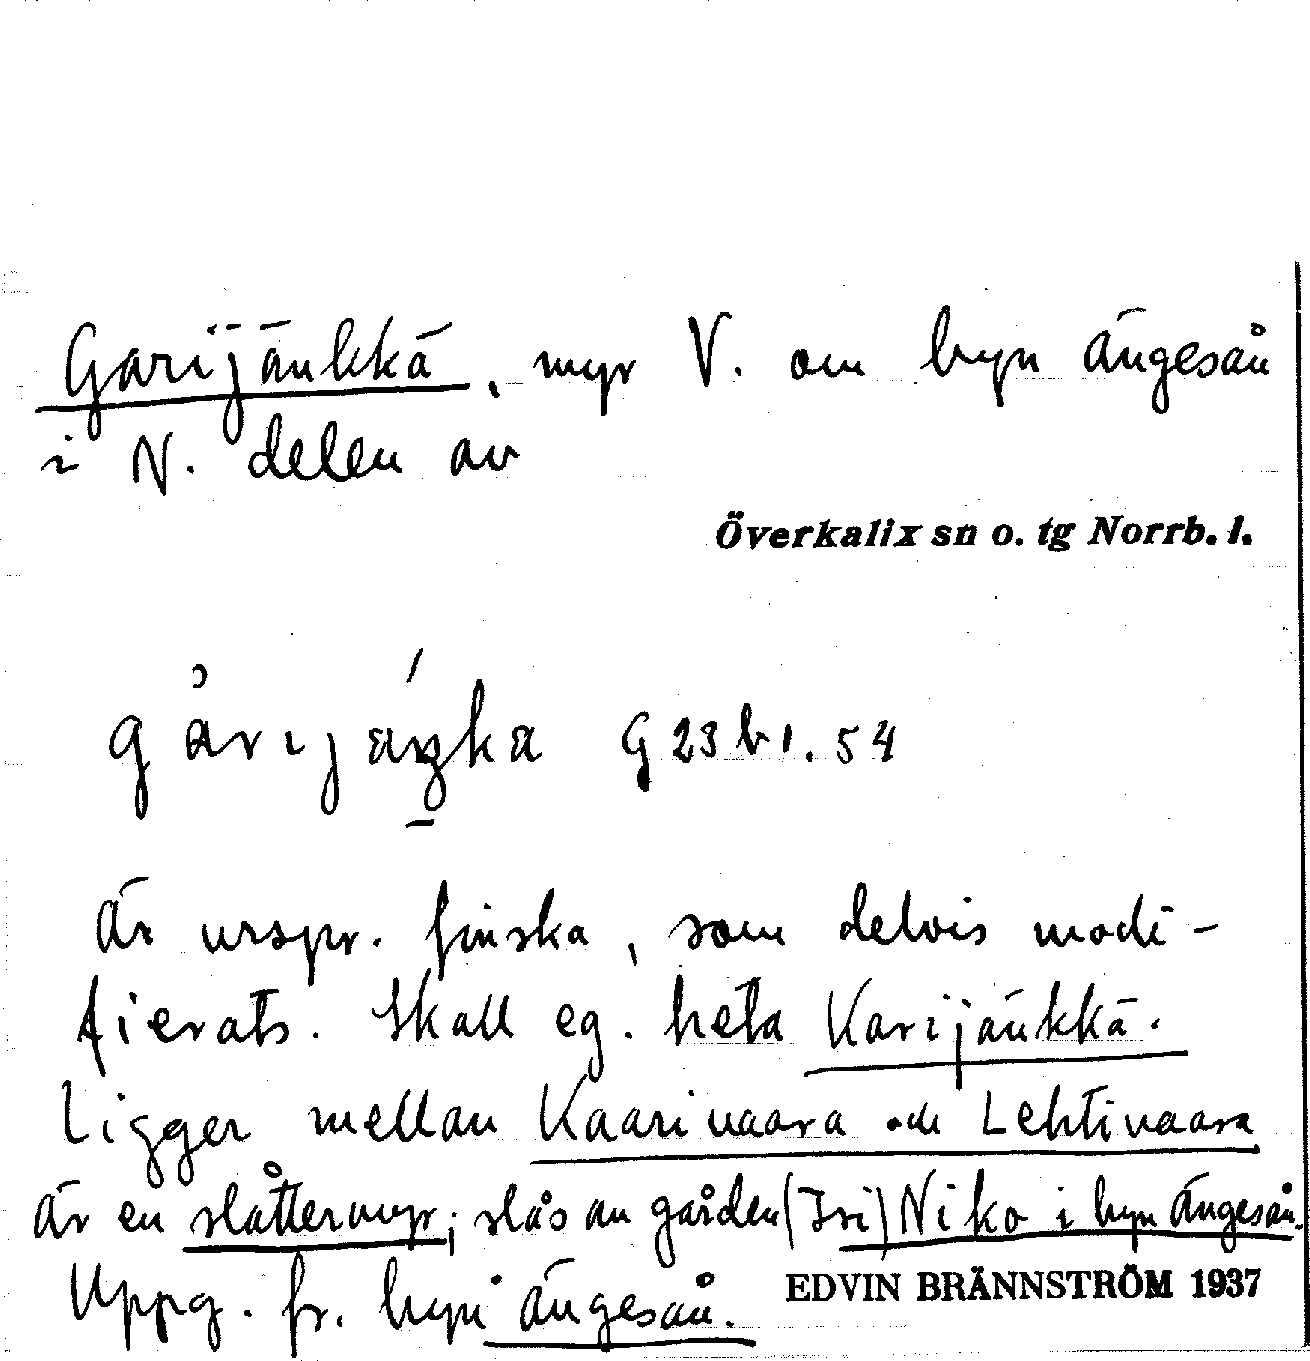 Garijänkkä, myr V. om byn Ängeså
i N. delen av
Överkalix sn o. tg Norrb. l.
G 23 b 1. 54
Är urspr. finska, som delvis modi-
fierats. Skall eg. heta Karijänkkä.
Ligger mellan Kaarivaara och Lehtivaara
är en slåttermyr; slås av gården (Isi) Niko i byn Ängeså.
Uppg. fr. byn Ängeså.
EDVIN BRÄNNSTRÖM 1937